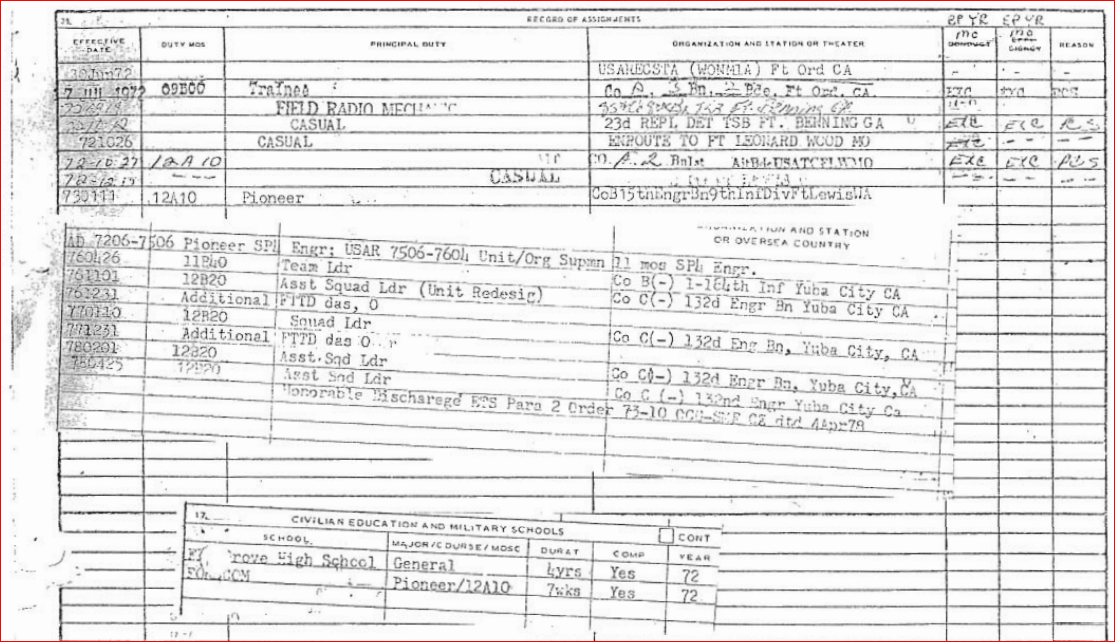 RECORD OF ASSIGNMENTS
EFFECTIVE DATE DUTY MOS PRINCIPAL DUTY ORGANIZATION AND STATION OR THEATER MO CONDUCT REASON
30Jun72 USARECSTA (WOMMIA) Ft Ord CA
1972 09B00 Trainee Co A, Bn, 2 Bde, Ft Ord, CA
FIELD RADIO MECHANIC
CASUAL 23d REPL DET TSB FT. BENNING GA EXC EXC
721026 CASUAL ENROUTE TO FT LEONARD WOOD MO
72-10-27 12A10 CO. A. 2 EXC EXC PCS
72-12- CASUAL
12A10 Pioneer CoB15thEngrBn9thInfDivFtLewisWA
AND STATION
OR OVERSEA COUNTRY
AD 7206-7506 Pioneer SP4 Engr; USAR 7506-7604 Unit/Org Supmn 11 mos SP4 Engr.
760426 11B40 Team Ldr Co B(-) 1-184th Inf Yuba City CA
761101 12B20 Asst Squad Ldr (Unit Redesig) Co C(-) 132d Engr Bn Yuba City CA
761231 Additional FTTD das, 0
770110 12B20 Squad Ldr Co C(-) 132d Eng Bn, Yuba City, CA
771231 Additional FTTD das 0
780201 12B20 Asst Sqd Ldr Co C(-) 132d Engr Bn, Yuba City, CA
780425 12B20 Asst Sqd Ldr Co C (-) 132nd Engr Yuba City Ca
Honorable Discharege ETS Para 2 Order 73-10 dtd 4Apr78
17. CIVILIAN EDUCATION AND MILITARY SCHOOLS CONT
SCHOOL MAJOR/COURSE/MOSC DURAT COMP YEAR
High School General 4yrs Yes 72
Pioneer/12A10 7wks Yes 72